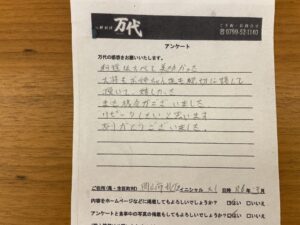 万代
ご予約・お問合せ
☎0799-52-1140
アンケート
万代の感想をお願いいたします。
料理はすべて美味かった
大将もお姉ちゃん達も親切に接して
頂いて、嬉しかった
また機会がございましたら
リピートしたいと思います
ありがとうございました。
ご住所(県・市区町村) イニシャル 日時 月
内容をホームページなどに掲載してもよろしいでしょうか? はい □いいえ
アンケートと食事中の写真の掲載もしてもよろしいでしょうか? □はい □いいえ